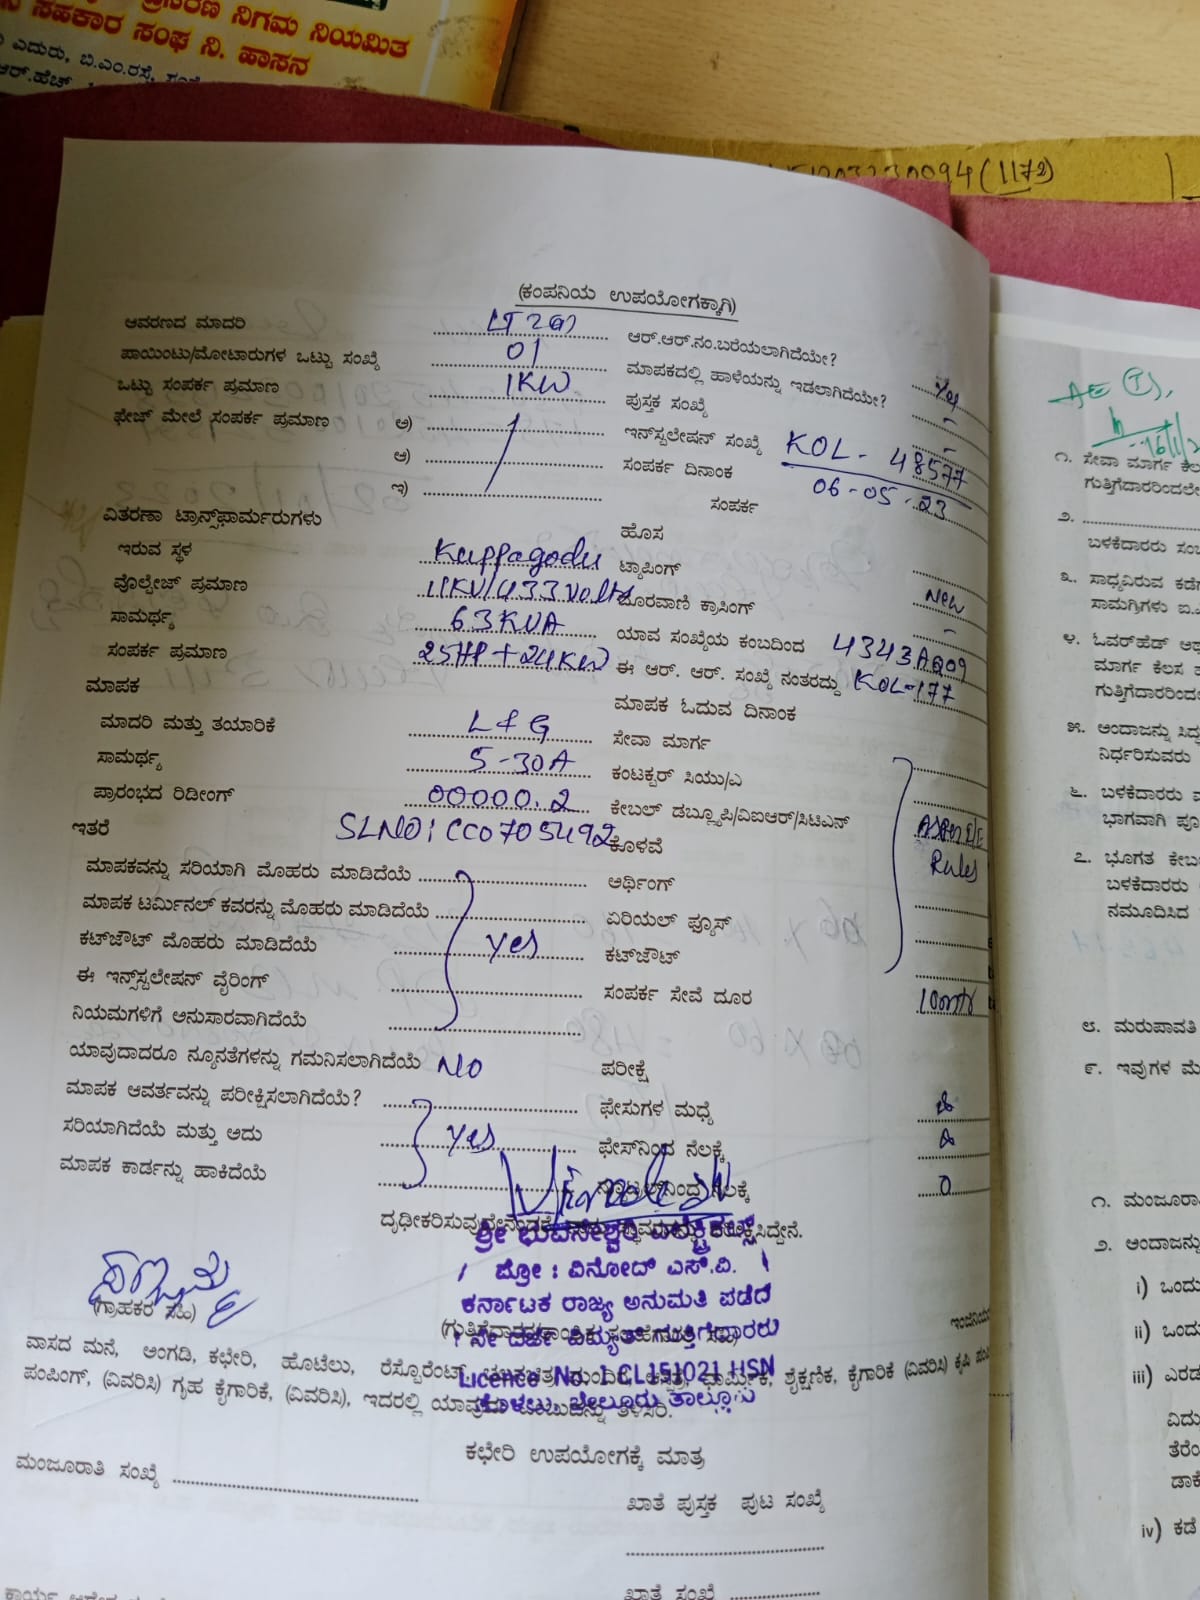 ಪ್ರಸರಣ ನಿಗಮ ನಿಯಮಿತ
ಸಹಕಾರ ಸಂಘ ನಿ. ಹಾಸನ
ಎದುರು, ಬಿ.ಎಂ.ರಸ್ತೆ,
ಆರ್.ಹೆಚ್
30094(1172)
(ಕಂಪನಿಯ ಉಪಯೋಗಕ್ಕಾಗಿ)
ಆವರಣದ ಮಾದರಿ LT 2(a) ಆರ್.ಆರ್.ನಂ.ಬರೆಯಲಾಗಿದೆಯೇ? Yes
ಪಾಯಿಂಟು/ಮೋಟಾರುಗಳ ಒಟ್ಟು ಸಂಖ್ಯೆ 01 ಮಾಪಕದಲ್ಲಿ ಹಾಳೆಯನ್ನು ಇಡಲಾಗಿದೆಯೇ? -
ಒಟ್ಟು ಸಂಪರ್ಕ ಪ್ರಮಾಣ 1KW ಪುಸ್ತಕ ಸಂಖ್ಯೆ -
ಫೇಜ್ ಮೇಲೆ ಸಂಪರ್ಕ ಪ್ರಮಾಣ ಅ) ಇನ್‌ಸ್ಟಲೇಷನ್ ಸಂಖ್ಯೆ KOL - 48577
ಆ) ಸಂಪರ್ಕ ದಿನಾಂಕ 06-05-23
ಇ) ಸಂಪರ್ಕ
ವಿತರಣಾ ಟ್ರಾನ್ಸ್‌ಫಾರ್ಮರುಗಳು ಹೊಸ
ಇರುವ ಸ್ಥಳ Kuppagodu ಟ್ಯಾಪಿಂಗ್ New
ವೊಲ್ಟೇಜ್ ಪ್ರಮಾಣ 11KV/433Volts ದೂರವಾಣಿ ಕ್ರಾಸಿಂಗ್ -
ಸಾಮರ್ಥ್ಯ 63KVA ಯಾವ ಸಂಖ್ಯೆಯ ಕಂಬದಿಂದ
ಸಂಪರ್ಕ ಪ್ರಮಾಣ 25HP+24KW ಈ ಆರ್. ಆರ್. ಸಂಖ್ಯೆ ನಂತರದ್ದು KOL-177
ಮಾಪಕ ಮಾಪಕ ಓದುವ ದಿನಾಂಕ
ಮಾದರಿ ಮತ್ತು ತಯಾರಿಕೆ L&G ಸೇವಾ ಮಾರ್ಗ
ಸಾಮರ್ಥ್ಯ 5-30A ಕಂಟಕ್ಟರ್ ಸಿಯು/ಎ
ಪ್ರಾರಂಭದ ರಿಡೀಂಗ್ 00000.2 ಕೇಬಲ್ ಡಬ್ಲ್ಯೂಪಿ/ವಿಐಆರ್/ಸಿಟಿಎನ್
ಇತರೆ SLNO: CC0705492 ಕೊಳವೆ Rules
ಮಾಪಕವನ್ನು ಸರಿಯಾಗಿ ಮೊಹರು ಮಾಡಿದೆಯೆ ಆರ್ಥಿಂಗ್
ಮಾಪಕ ಟರ್ಮಿನಲ್ ಕವರನ್ನು ಮೊಹರು ಮಾಡಿದೆಯೆ ಏರಿಯಲ್ ಪ್ಯೂಸ್
ಕಟ್‌ಜೌಟ್ ಮೊಹರು ಮಾಡಿದೆಯೆ yes ಕಟ್‌ಜೌಟ್
ಈ ಇನ್ಸ್‌ಸ್ಟಲೇಷನ್ ವೈರಿಂಗ್ ಸಂಪರ್ಕ ಸೇವೆ ದೂರ 10mtr
ನಿಯಮಗಳಿಗೆ ಅನುಸಾರವಾಗಿದೆಯೆ
ಯಾವುದಾದರೂ ನ್ಯೂನತೆಗಳನ್ನು ಗಮನಿಸಲಾಗಿದೆಯೆ NO ಪರೀಕ್ಷೆ
ಮಾಪಕ ಆವರ್ತವನ್ನು ಪರೀಕ್ಷಿಸಲಾಗಿದೆಯೆ? ಫೇಸುಗಳ ಮಧ್ಯೆ
ಸರಿಯಾಗಿದೆಯೆ ಮತ್ತು ಅದು yes ಫೇಸ್‌ನಿಂದ ನೆಲಕ್ಕೆ
ಮಾಪಕ ಕಾರ್ಡನ್ನು ಹಾಕಿದೆಯೆ ನೆಲಕ್ಕೆ 0
ಶ್ರೀ ಭುವನೇಶ್ವರಿ ಎಲೆಕ್ಟ್ರಿಕಲ್ಸ್
ಪ್ರೋ : ವಿನೋದ್ ಎಸ್.ವಿ.
ಕರ್ನಾಟಕ ರಾಜ್ಯ ಅನುಮತಿ ಪಡೆದ
(ಗ್ರಾಹಕರ ಸಹಿ)
Licence No. 1 CL151021 HSN
ವಾಸದ ಮನೆ, ಅಂಗಡಿ, ಕಛೇರಿ, ಹೊಟೆಲು, ರೆಸ್ಟೊರೆಂಟ್, ಶೈಕ್ಷಣಿಕ, ಕೈಗಾರಿಕೆ (ವಿವರಿಸಿ) ಕೃಷಿ
ಪಂಪಿಂಗ್, (ವಿವರಿಸಿ) ಗೃಹ ಕೈಗಾರಿಕೆ, (ವಿವರಿಸಿ), ಇದರಲ್ಲಿ ತಿಳಿಸಿರಿ.
ಬೇಲೂರು ತಾಲ್ಲೂಕು
ಕಛೇರಿ ಉಪಯೋಗಕ್ಕೆ ಮಾತ್ರ
ಮಂಜೂರಾತಿ ಸಂಖ್ಯೆ
ಖಾತೆ ಪುಸ್ತಕ ಪುಟ ಸಂಖ್ಯೆ
ಖಾತೆ ಸಂಖ್ಯೆ
೧. ಸೇವಾ ಮಾರ್ಗ
ಗುತ್ತಿಗೆದಾರರಿಂದಲೇ
೨.
ಬಳಕೆದಾರರು
೩. ಸಾಧ್ಯವಿರುವ
ಸಾಮಗ್ರಿಗಳು
೪. ಓವರ್‌ಹೆಡ್
ಮಾರ್ಗ ಕೆಲಸ
೫. ಅಂದಾಜನ್ನು
ನಿರ್ಧರಿಸುವರು
೬. ಬಳಕೆದಾರರು
ಭಾಗವಾಗಿ
೭. ಭೂಗತ
ಬಳಕೆದಾರರು
ನಮೂದಿಸಿದ
೮. ಮರುಪಾವತಿ
೯. ಇವುಗಳ
೧.
೨. ಅಂದಾಜನ್ನು
i) ಒಂದು
ii) ಒಂದು
iii)
iv) ಕಡೆ